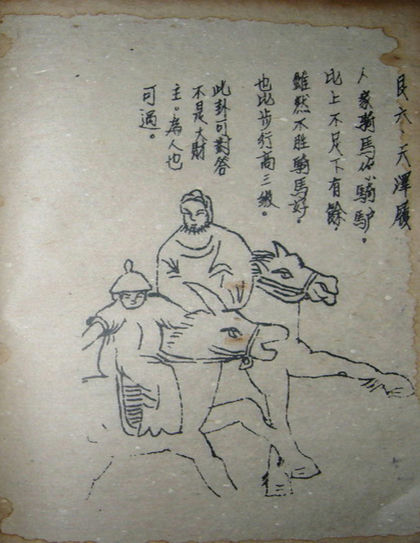 艮六、天澤履
人家騎馬你騎驴。
比上不足下有餘
雖然不胜騎馬好。
也比步行高三级。
此卦可对答
不是大財
主。為人也
可過。